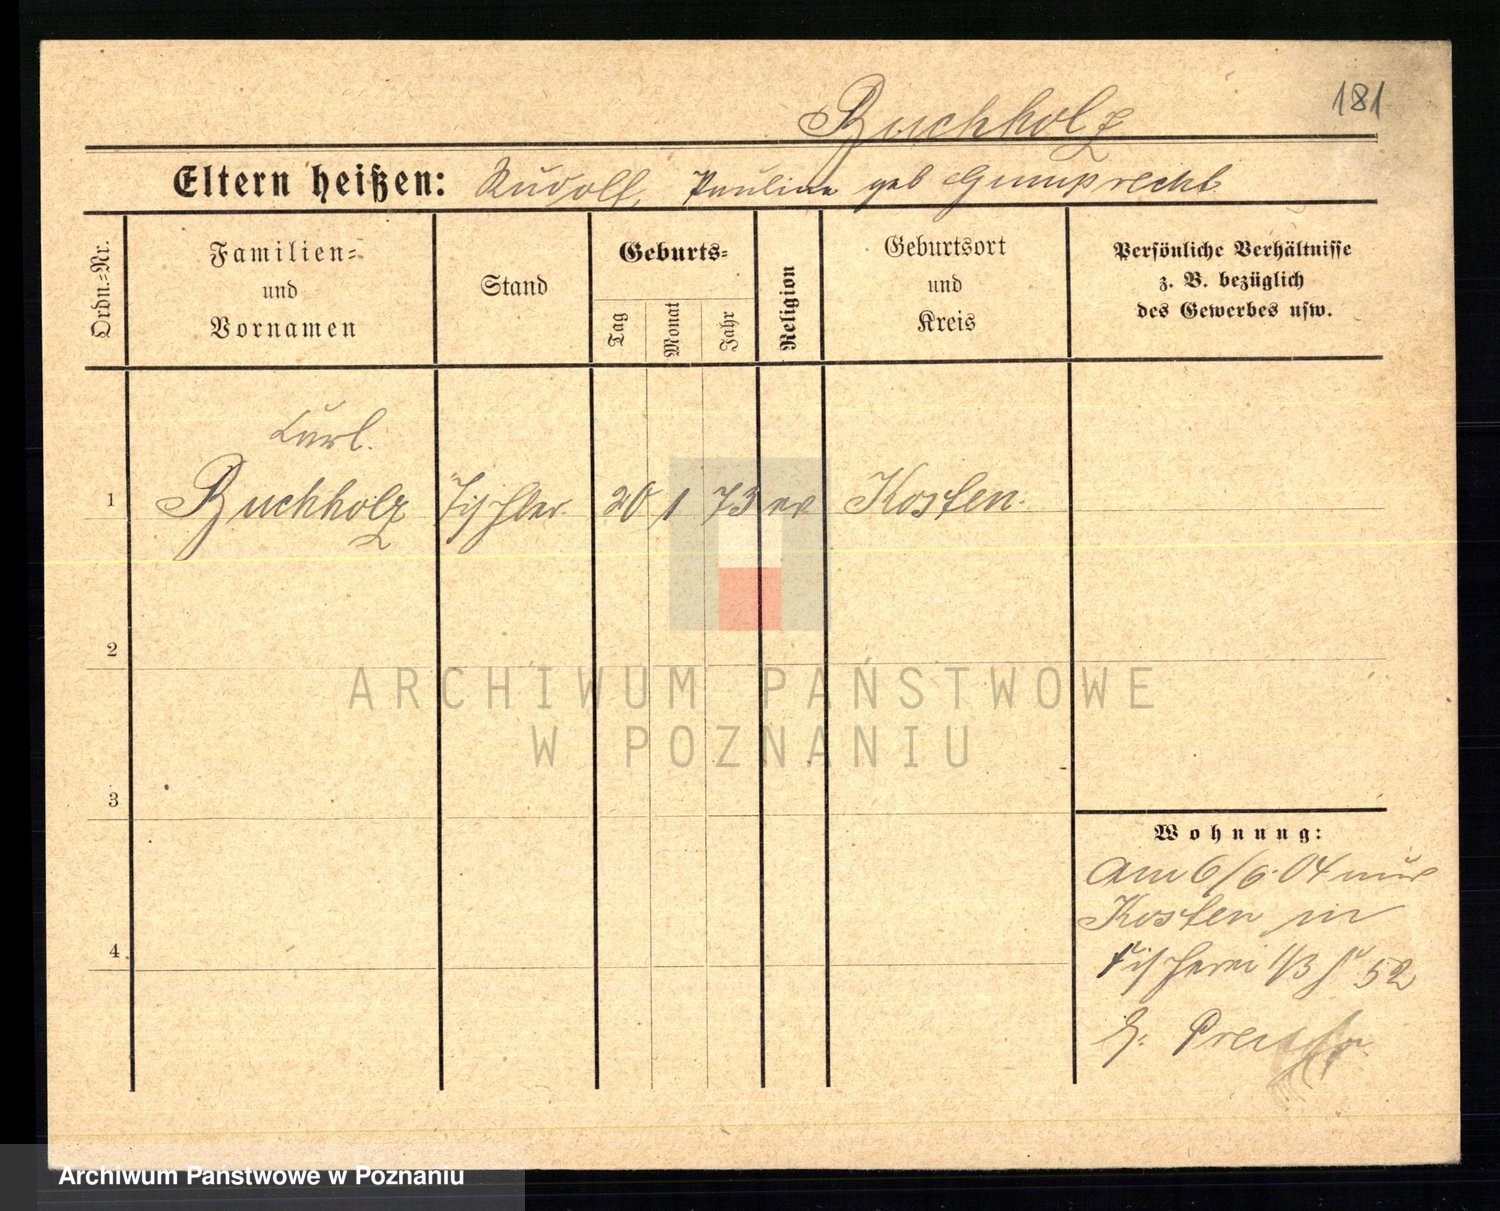 181
Buchholz
Eltern heißen: Rudolf, Pauline geb Gumprecht.
Ordn.-Nr.
Familien- und Vornamen
Stand
Geburts-
Tag
Monat
Jahr
Religion
Geburtsort und Kreis
Persönliche Verhältnisse
z. B. bezüglich
des Gewerbes usw.
Curl.
1 Buchholz Tischler 20 1 73 ev Kosten.
2
3
4
Wohnung:
Am 6/6.04 nur
Kosten in
Fischerei 1/3 52
ARCHIWUM PAŃSTWOWE
W POZNANIU
Archiwum Państwowe w Poznaniu